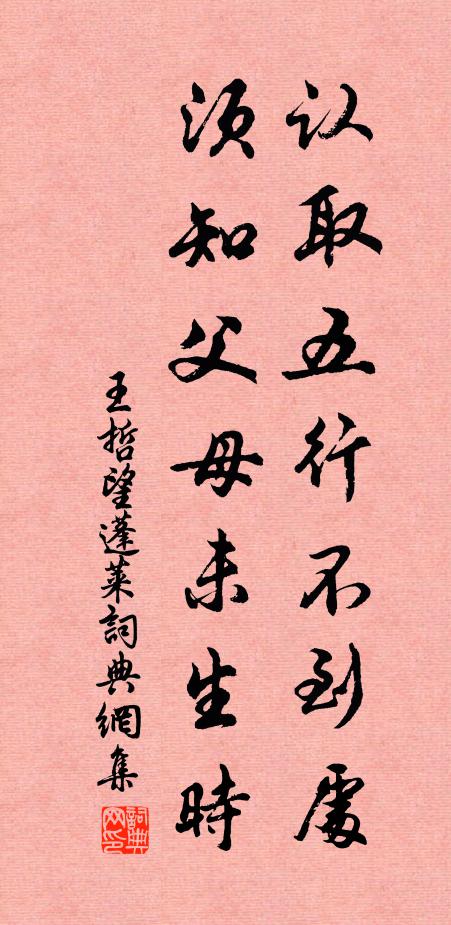 认取五行不到處
须知父母未生時
王哲望蓬萊詞典網集
詞典网印